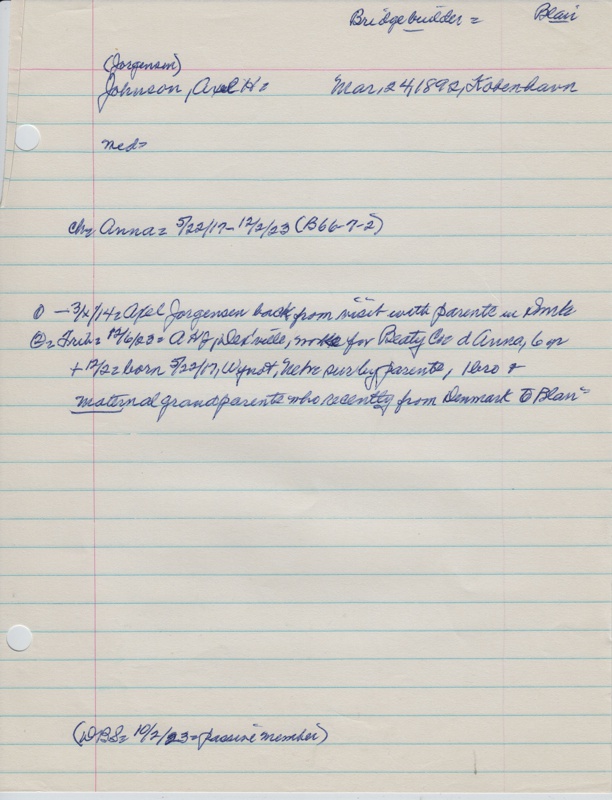 Bridgebuilder = Blair
(Jorgensen)
Johnson, Axel H = Mar, 24, 1892, Kobenhavn
med=
ch= Anna = 5/22/17 - 12/2/23 (B66-7-2)
① - 3/ /14 = Axel Jorgensen back from visit with parents in Dmk
②= Trib = 12/6/23 = A H J, ville, works for Beaty Co d Anna, 6 yr
+ 12/2 = born 5/22/17, Wynot, Nebr. sur by parents, 1 bro +
maternal grandparents who recently from Denmark to Blair =
(DBS = 10/2/23 = passive member)